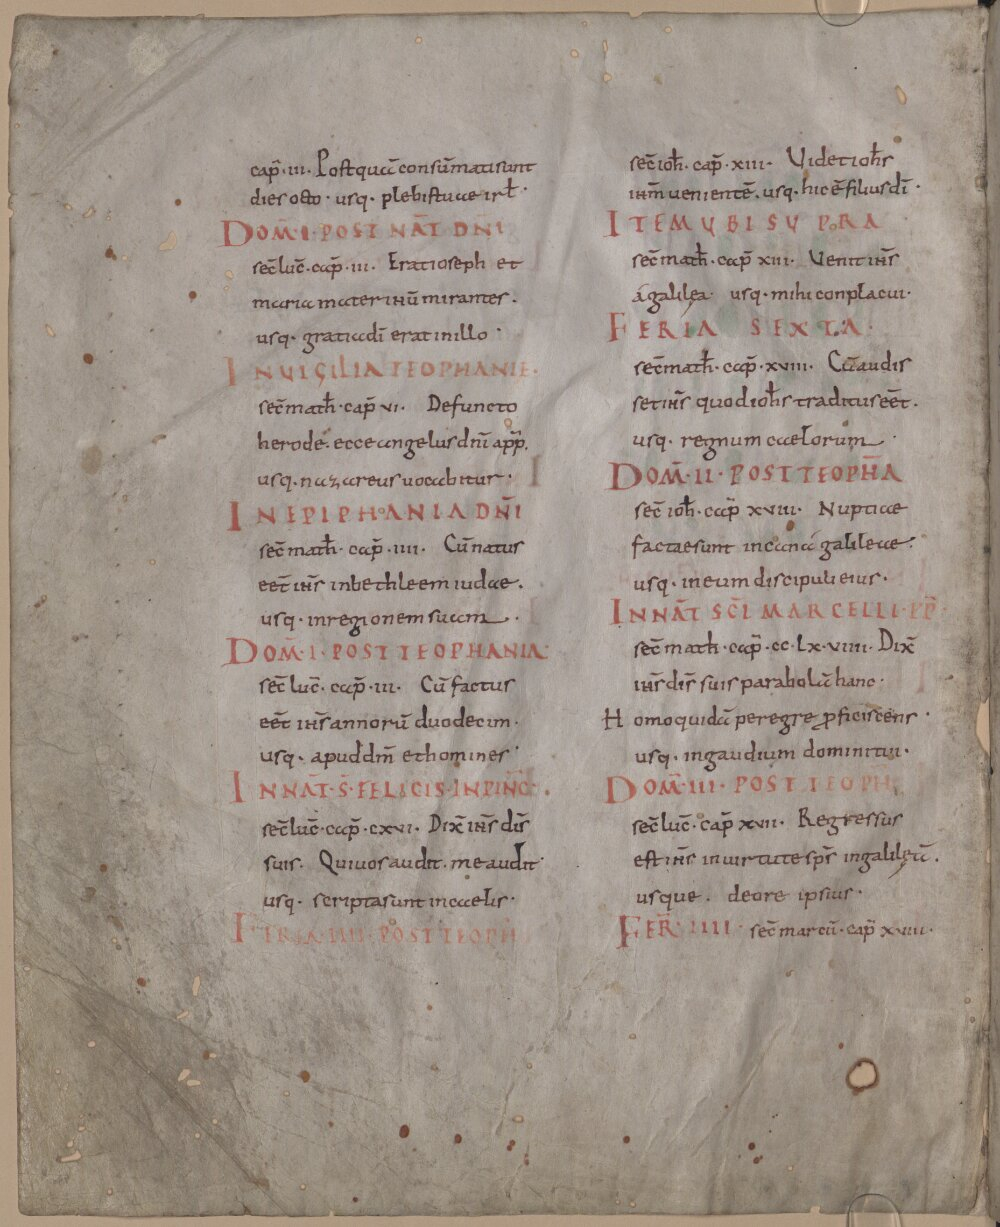 cap̄·iii· Postquā consūmati sunt
dies octo· usq· plebis tuae irł·
DOM̄·I·POST NAT̄ DNĪ
sec̄ luc̄·cap̄·iii· Erat ioseph et
maria mater ihū mirantes·
usq· gratia dī erat in illo·
IN VIGILIA TEOPHANIE·
sec̄ math̄·cap̄ vi· Defuncto
herode· ecce angelus dnī app̄·
usq· nazareus uocabitur·
IN EPIPHANIA DNĪ
sec̄ math̄· cap̄·iiii· Cū natus
eet̄ ihs̄ in bethleem iudae·
usq· in regionem suam·
DOM̄·I·POST TEOPHANIA·
sec̄ luc̄· cap̄·iii· Cū factus
eet̄ ihs̄ annorū duodecim·
usq· apud dm̄ et homines·
IN NAT̄·S̄·FELICIS·IN PINC̄·
sec̄ luc̄·cap̄·cxvi· Dix̄ ihs̄ dis̄
suis· Qui uos audit· me audit·
usq· scripta sunt in caelis·
FERIA·IIII·POST TEOPH̄
sec̄ ioh̄· cap̄·xiii· Videt ioh̄s
ihm̄ uenientē· usq· hic ē filius dī·
ITEM UBI SUPRA
sec̄ math̄· cap̄ xiii· Venit ihs̄
a galilea· usq· mihi conplacui·
FERIA SEXTA·
sec̄ math̄· cap̄·xviii· Cū audis
set ihs̄ quod ioh̄s traditus eet̄·
usq· regnum caelorum·
DOM̄·II·POST TEOPH̄A
sec̄ ioh̄· cap̄ xviii· Nuptiae
factae sunt in cana galileae·
usq· in eum discipuli eius·
IN NAT̄ SC̄I MARCELLI·PP̄·
sec̄ math· cap̄·cc·lx·viiii· Dix̄
ihs̄ dis̄ suis parabolā hanc·
Homo quidā peregre p̄ficiscens·
usq· in gaudium domini tui·
DOM̄·III·POST TEOPH̄
sec̄ luc̄· cap̄ xvii· Regressus
est ihs̄ in uirtute sps̄ in galileā·
usque· de ore ipsius·
FER̄·IIII· sec̄ marcū·cap̄ xviii·